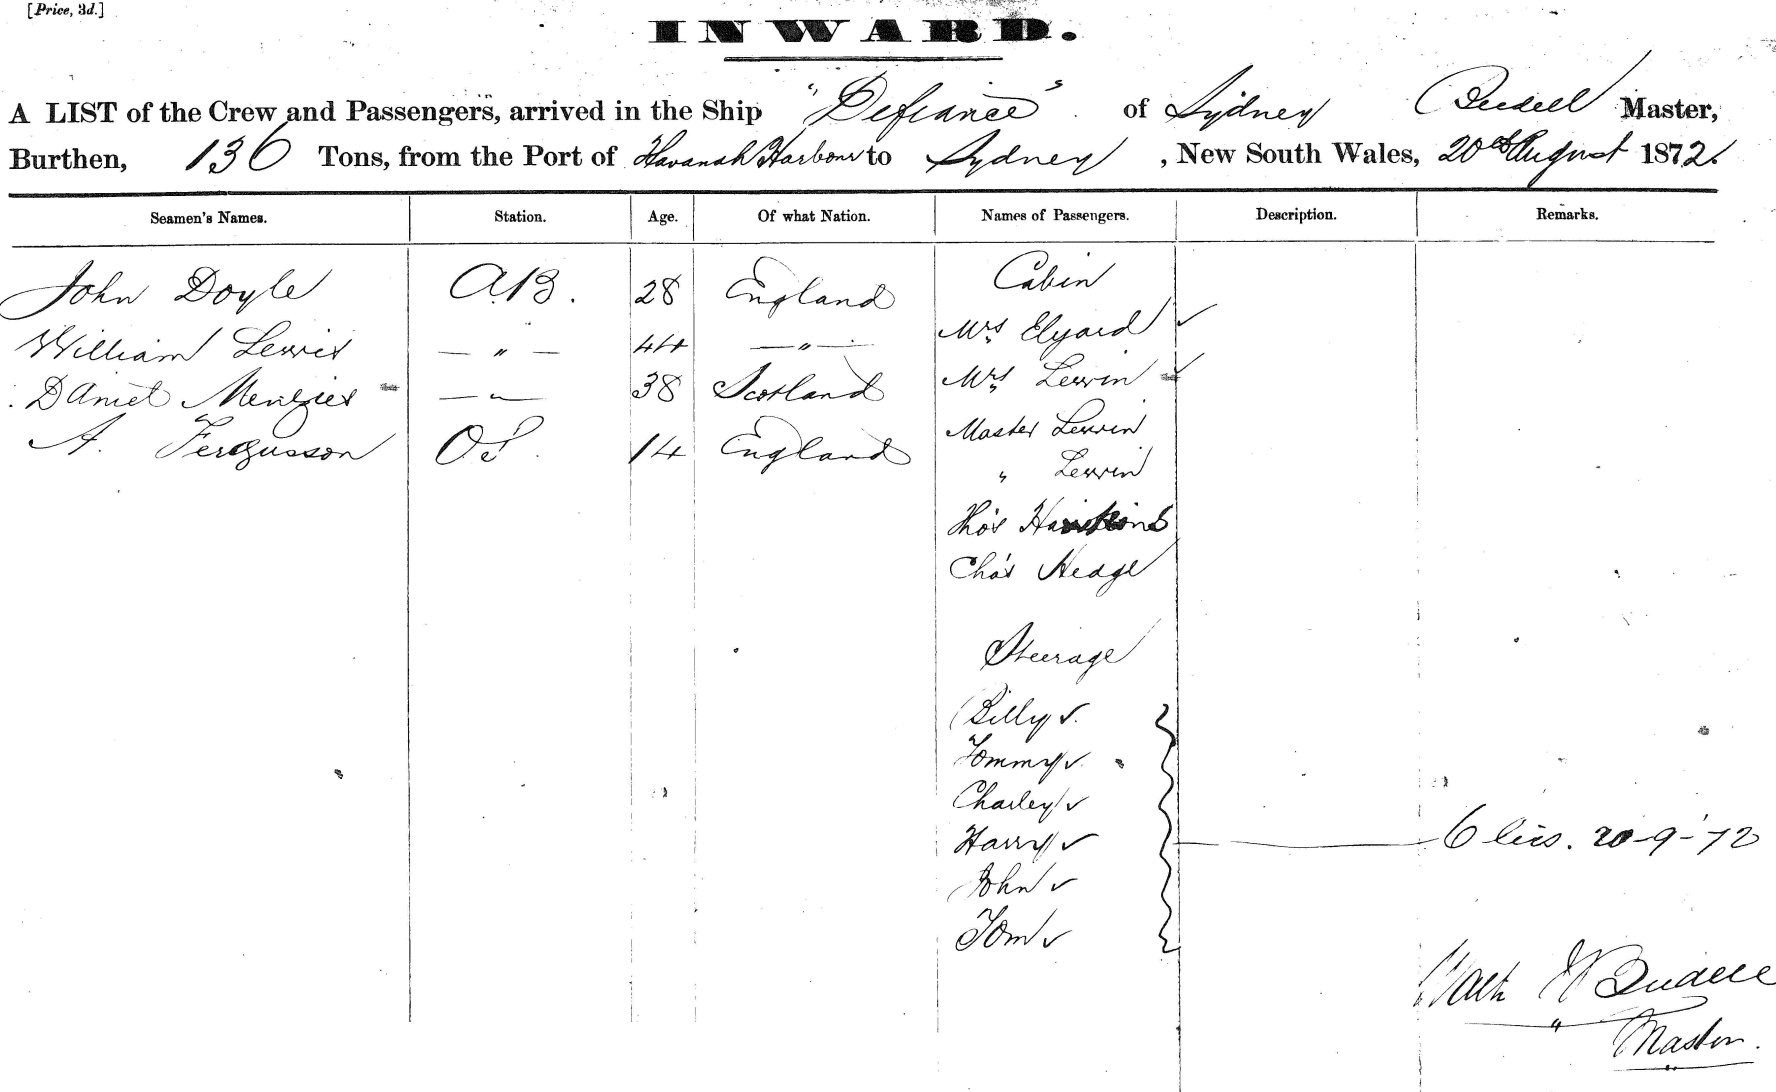 [Price, 3d.]
INWARD.
A LIST of the Crew and Passengers, arrived in the Ship "Defiance" of Sydney Master,
Burthen, 136 Tons, from the Port of Havanah Harbour to Sydney, New South Wales, 20th August 1872.
Seamen's Names. Station. Age. Of what Nation. Names of Passengers. Description. Remarks.
Cabin
John Doyle A.B. 28 England
Mrs Elyard ✓
William Lewis — " — 44 — " —
Mrs Lewin ✓
Daniel Menzies — " — 38 Scotland
Master Lewin
A. Fergusson O.S. 14 England
" Lewin
Thos
Chas Hedge
Steerage
Billy ✓
Tommy ✓
Charley ✓
Harry ✓ 6 20-9-72
John ✓
Tom ✓
Master.